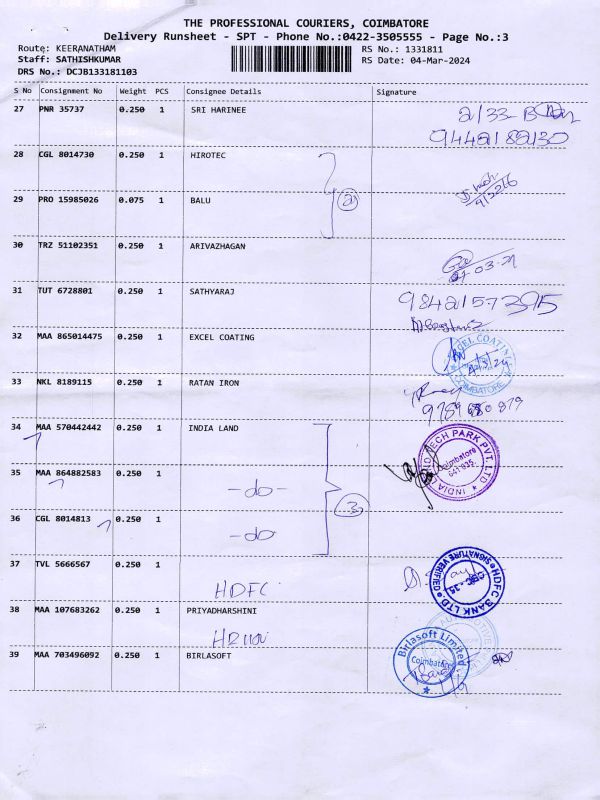 THE PROFESSIONAL COURIERS, COIMBATORE
Delivery Runsheet - SPT - Phone No.:0422-3505555 - Page No.:3
Route: KEERANATHAM
Staff: SATHISHKUMAR
DRS No.: DCJB133181103
RS No.: 1331811
RS Date: 04-Mar-2024
S No Consignment No Weight PCS Consignee Details Signature
27 PNR 35737 0.250 1 SRI HARINEE
28 CGL 8014730 0.250 1 HIROTEC
29 PRO 15985026 0.075 1 BALU
2
30 TRZ 51102351 0.250 1 ARIVAZHAGAN
31 TUT 6728801 0.250 1 SATHYARAJ 9842157395
32 MAA 865014475 0.250 1 EXCEL COATING
COIMBATORE
33 NKL 8189115 0.250 1 RATAN IRON
34 MAA 570442442 0.250 1 INDIA LAND
INDIA LAND TECH PARK PVT. LTD
Coimbatore
641 035
35 MAA 864882583 0.250 1
-do-
36 CGL 8014813 0.250 1
3
-do-
37 TVL 5666567 0.250 1
HDFC
HDFC BANK LTD
SIGNATURE VERIFIED
38 MAA 107683262 0.250 1 PRIYADHARSHINI
39 MAA 703496092 0.250 1 BIRLASOFT
Birlasoft Limited
Coimbatore